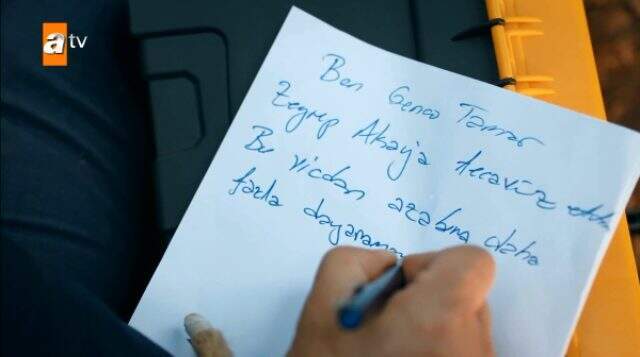 atv
Ben Genco Tamar
Zeynep Akay'a tecavüz ettim
Bu vicdan azabına daha
fazla